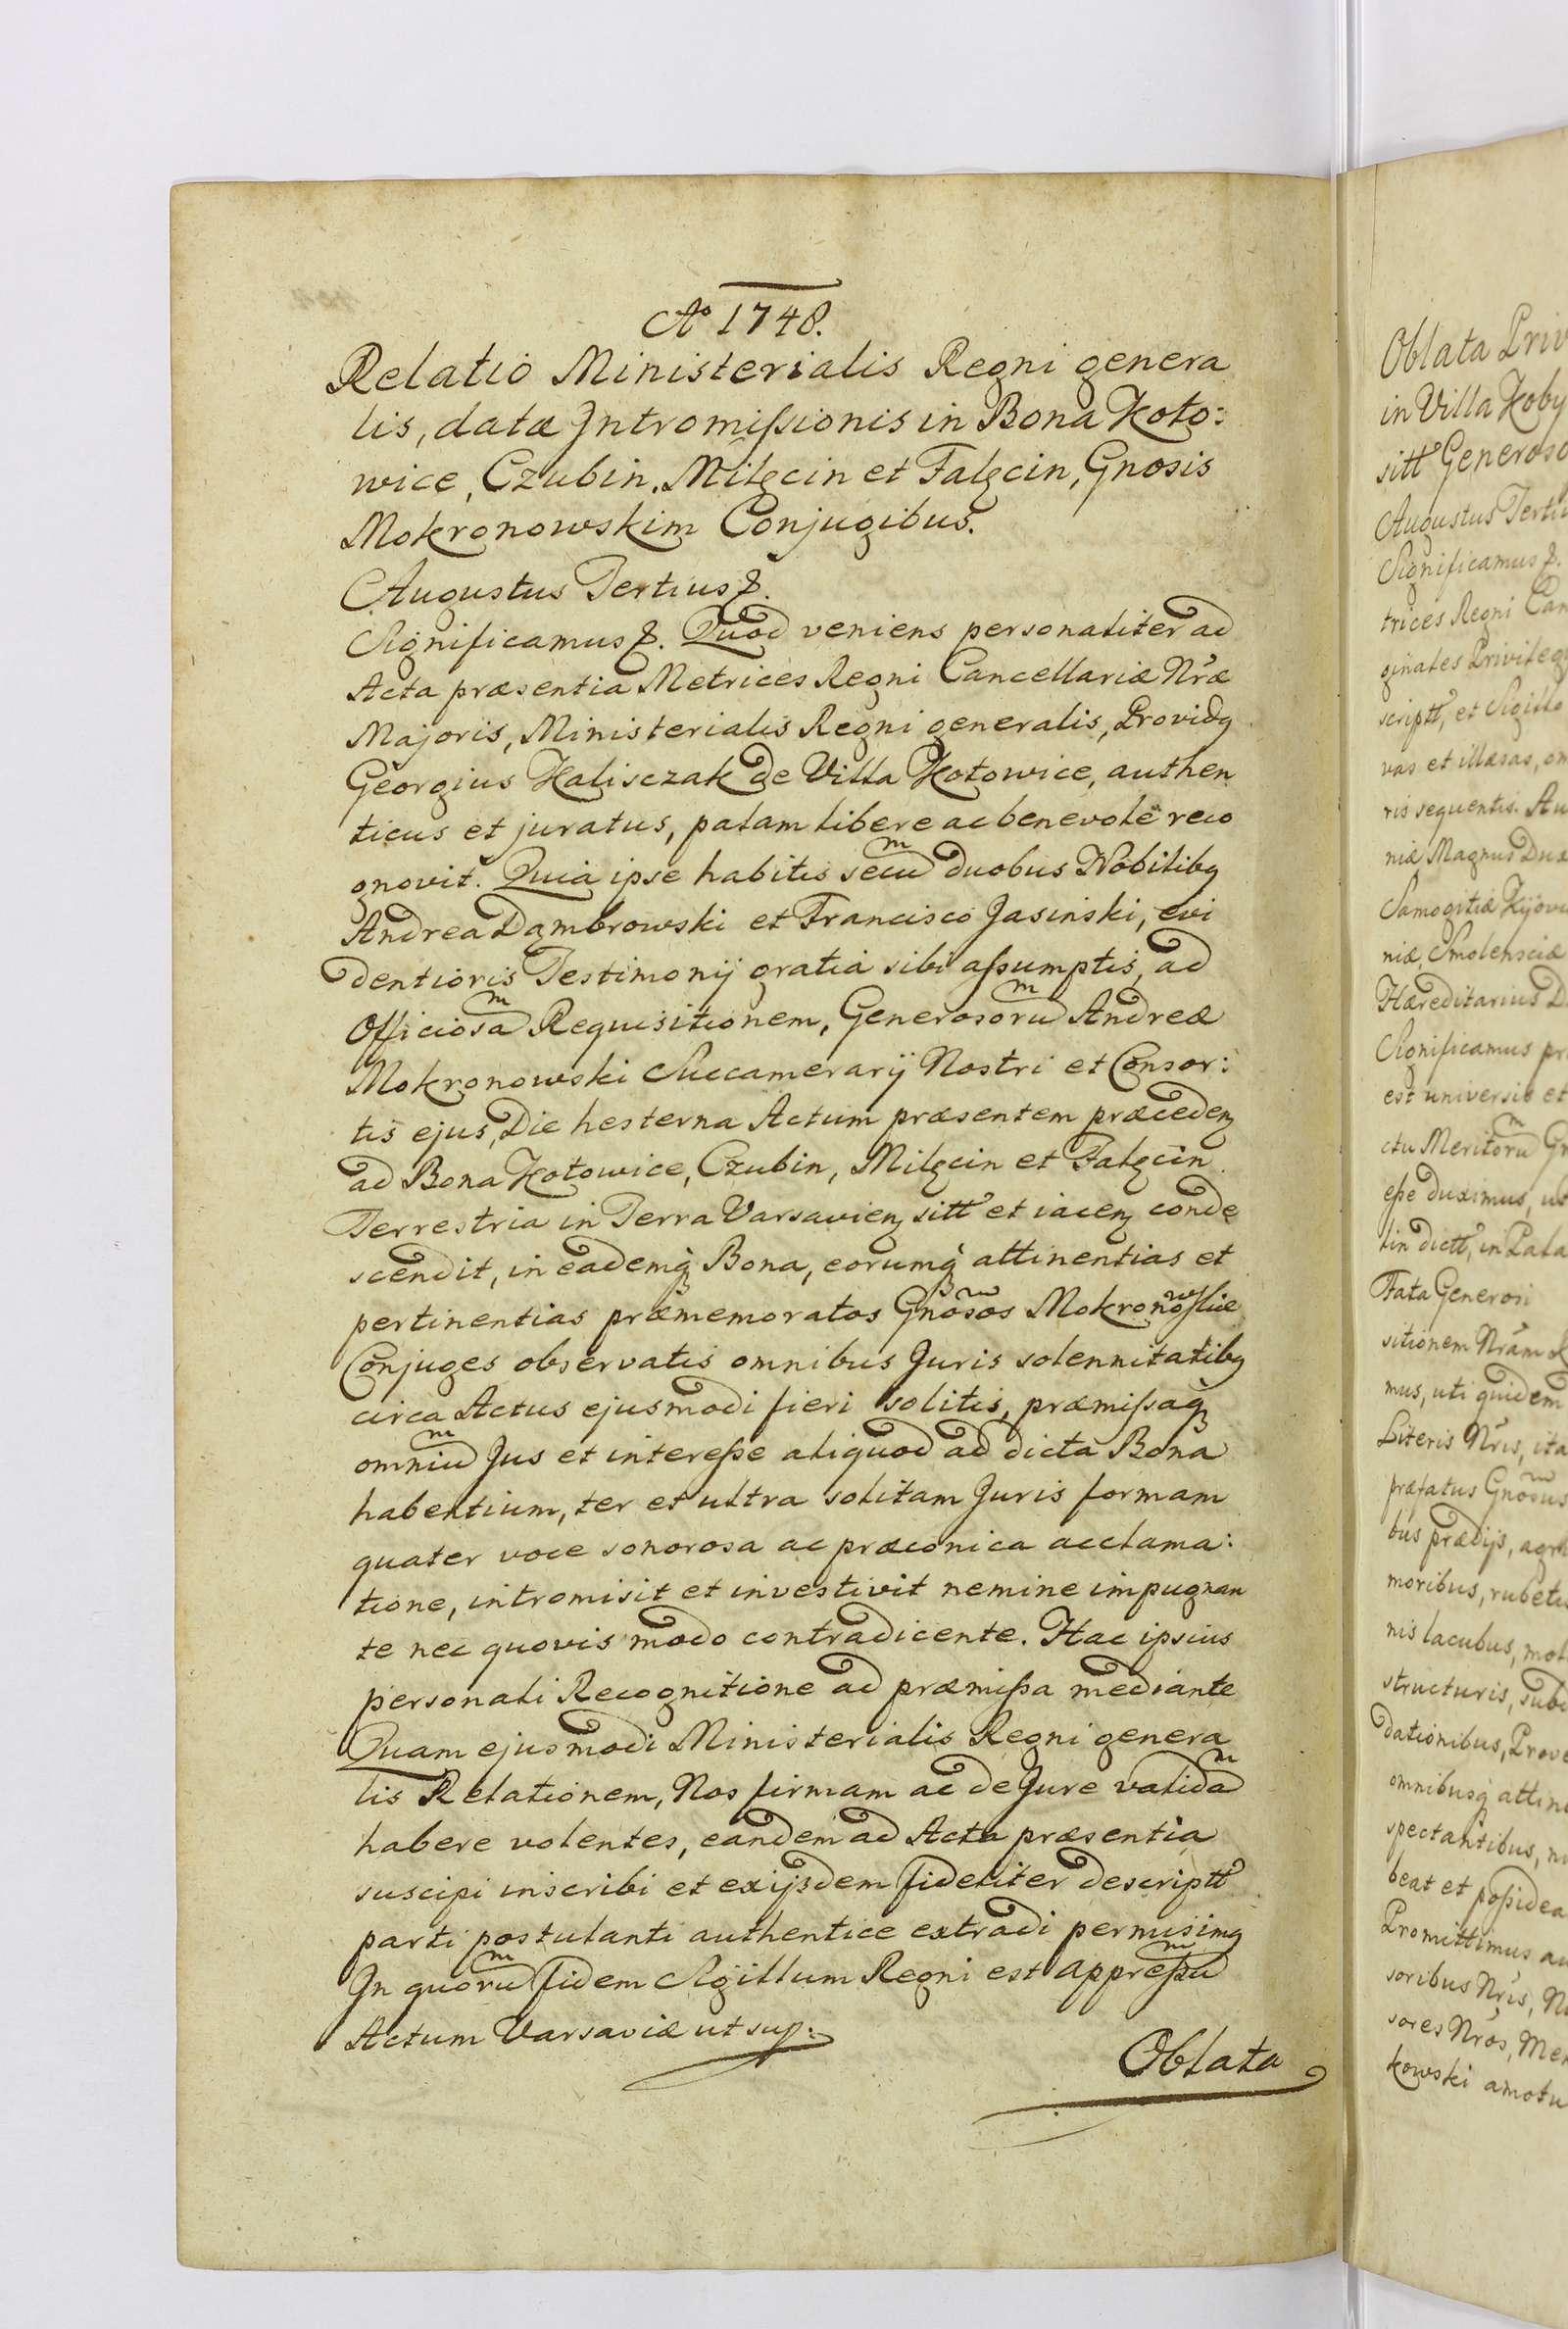 Aº 1748.
Relatio Ministerialis Regni genera
lis, datæ Intromissionis in Bona Koto:
wice, Czubin, Milęcin et Falęcin, Gnosis
Mokronowskim Conjugibus.
Augustus Tertius &.
Significamus &. Quod veniens personaliter ad
Acta præsentia Metrices Regni Cancellariæ Nræ
Majoris, Ministerialis Regni generalis, Providq
Georgius Halisczak de Villa Kotowice, authen
ticus et juratus, palam libere ac benevole reco
gnovit. Quia ipse habitis secum duobus Nobilibq
Andrea Dąmbrowski et Francisco Jasinski, evi
dentioris Testimonij gratia sibi assumptis, ad
Officiosam Requisitionem, Generosorum Andreæ
Mokronowski Succamerarij Nostri et Consor:
tis ejus, Die hesterna Actum præsentem præceden
ad Bona Kotowice, Czubin, Milęcin et Falęcin
Terrestria in Terra Varsavien sitt et iacen conde
scendit, in eademq Bona, eorumq attinentias et
pertinentias præmemoratos Gnosos Mokronowskie
Conjuges observatis omnibus Juris solennitatibq
circa Actus ejusmodi fieri solitis, præmissaq
omnium Jus et interesse aliquod ad dicta Bona
habentium, ter et ultra solitam Juris formam
quater voce sonorosa ac præconica acclama:
tione, intromisit et investivit nemine impugnan
te nec quovis modo contradicente. Hac ipsius
personali Recognitione ad præmissa mediante
Quam ejusmodi Ministerialis Regni genera
lis Relationem, Nos firmam ac de Jure validam
habere volentes, eandem ad Acta præsentia
suscipi inscribi et exijsdem fideliter descriptt
parti postulanti authentice extradi permisimq
In quorum fidem Sigillum Regni est appressum
Actum Varsaviæ ut sup:
Oblata
Oblata Priv
in Villa Koby
sitt Generoso
Augustus Tertiu
Significamus &.
trices Regni Can
ginales Privileg
scriptt, et Sigillo
vas et illæsas, om
ris sequentis. Au
niæ Magnus Dux
Samogitiæ Kijovi
niæ, Smolensciæ
Hæreditarius D
Significamus pr
est universis et
ctu Meritorum Gr
esse duximus, ut
tin dictt, in Pala
Fata Generosi
sitionem Nram
mus, uti quidem
Literis Nris, ita
præfatus Gnosus
bus prædijs, agris
moribus, rubetis
nis lacubus, mol
structuris, subd
dationibus, Prove
omnibusq attine
spectantibus, ni
beat et possidea
Promittimus au
soribus Nris, N
sores Nros, Mem
kowski amotu